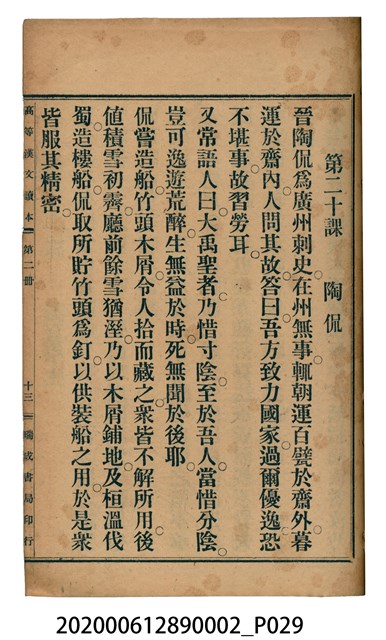 第二十課　陶侃
晉陶侃爲廣州刺史。在州無事。輒朝運百甓於齋外。暮
運於齋內。人問其故。答曰。吾方致力國家。過爾優逸。恐
不堪事。故習勞耳。
又常語人曰。大禹聖者。乃惜寸陰。至於吾人。當惜分陰。
豈可逸遊荒醉。生無益於時。死無聞於後耶。
侃嘗造船。竹頭木屑。令人拾而藏之。衆皆不解所用。後
値積雪初霽。廳前餘雪猶溼。乃以木屑鋪地。及桓溫伐
蜀。造樓船。侃取所貯竹頭爲釘。以供裝船之用。於是衆
皆服其精密。
高等漢文讀本　第二册　十三　瑞成書局印行
202000612890002_P029